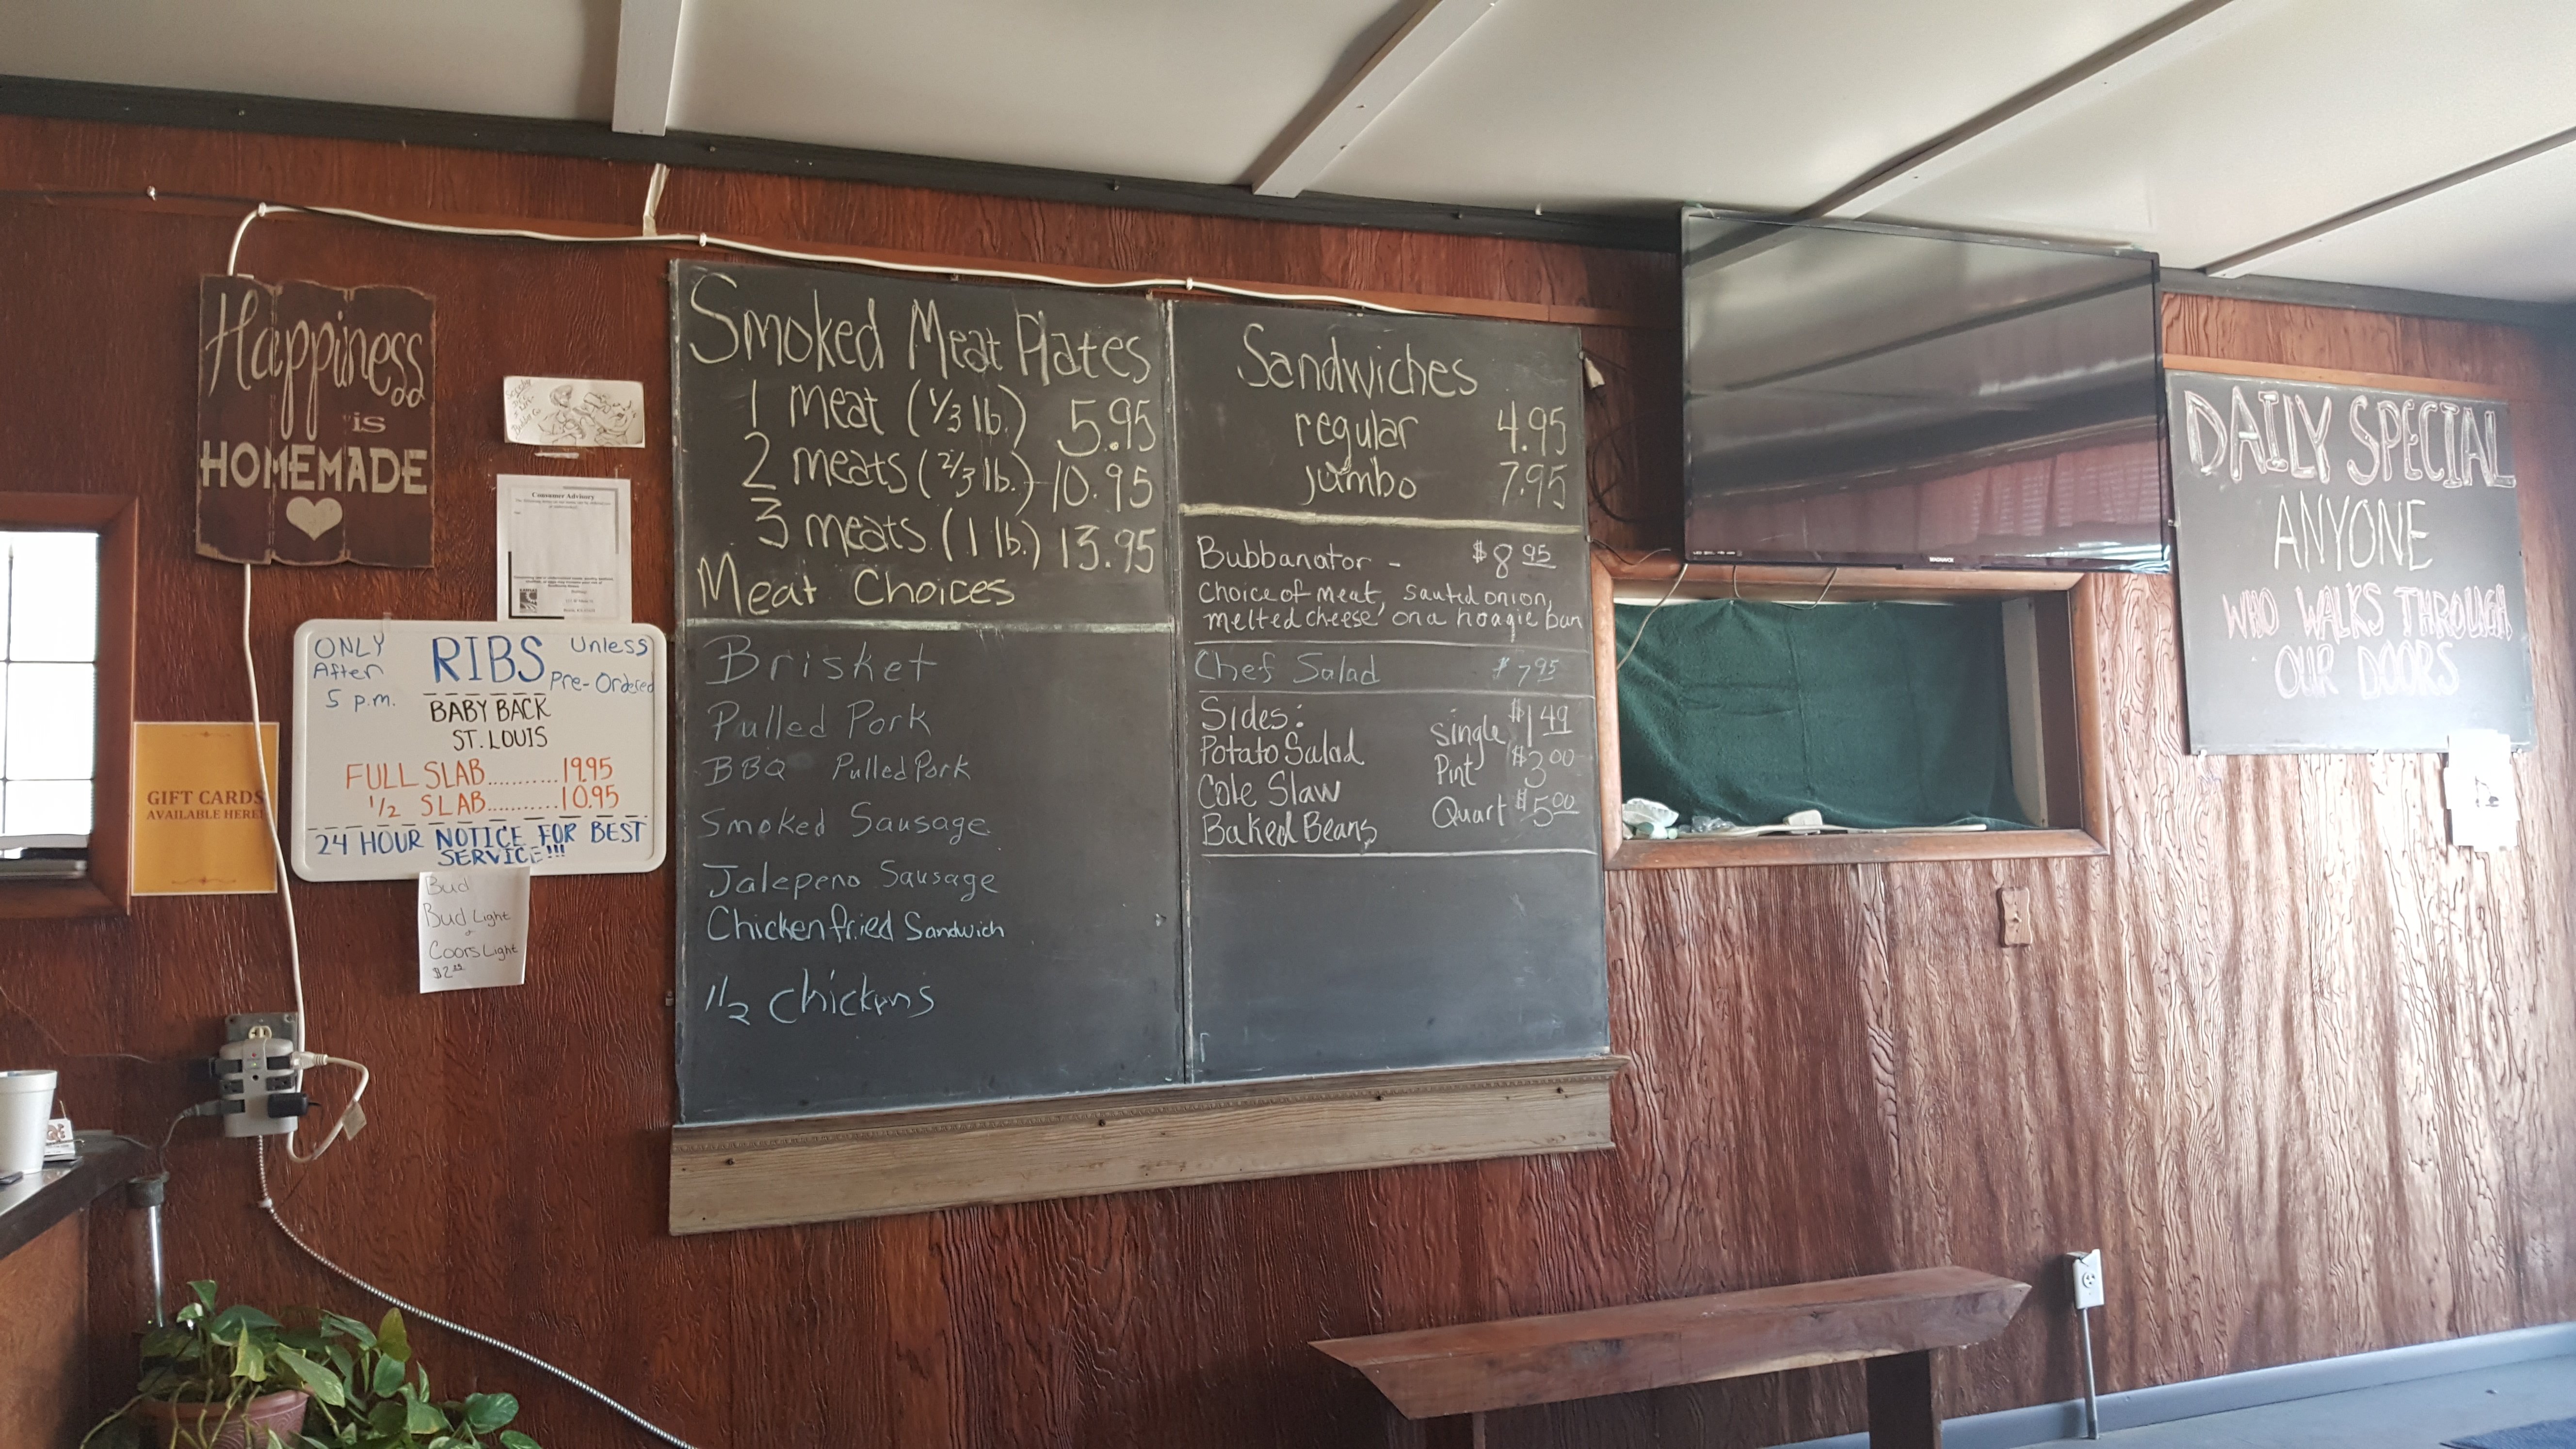 Happiness
is
HOMEMADE
Consumer Advisory
ONLY
After
5 p.m.
RIBS
Unless
Pre-Ordered
BABY BACK
ST. LOUIS
FULL SLAB...........19.95
1/2 SLAB...........10.95
24 HOUR NOTICE FOR BEST
SERVICE!!!
GIFT CARDS
AVAILABLE HERE!
Bud
Bud Light
Coors Light
Smoked Meat Plates
1 meat (1/3 lb.) 5.95
2 meats (2/3 lb.) 10.95
3 meats (1 lb.) 13.95
Meat Choices
Brisket
Pulled Pork
BBQ Pulled Pork
Smoked Sausage
Jalepeno Sausage
Chicken fried Sandwich
1/2 chickens
Sandwiches
regular 4.95
jumbo 7.95
Bubbanator - $8.95
choice of meat, sauted onion,
melted cheese, on a hoagie bun
Chef Salad $7.95
Sides:
Potato Salad
Cole Slaw
Baked Beans
Single $1.49
Pint $3.00
Quart $5.00
MAGNAVOX
DAILY SPECIAL
ANYONE
WHO WALKS THROUGH
OUR DOORS